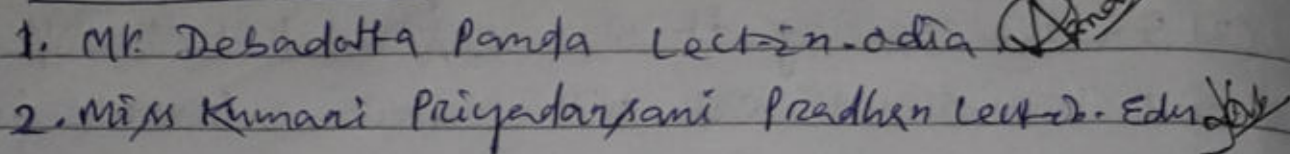 1. Mr. Debadatta Panda Lect-in-odia
2. Miss Kumari Priyadarsani Pradhan Lect-in. Edn